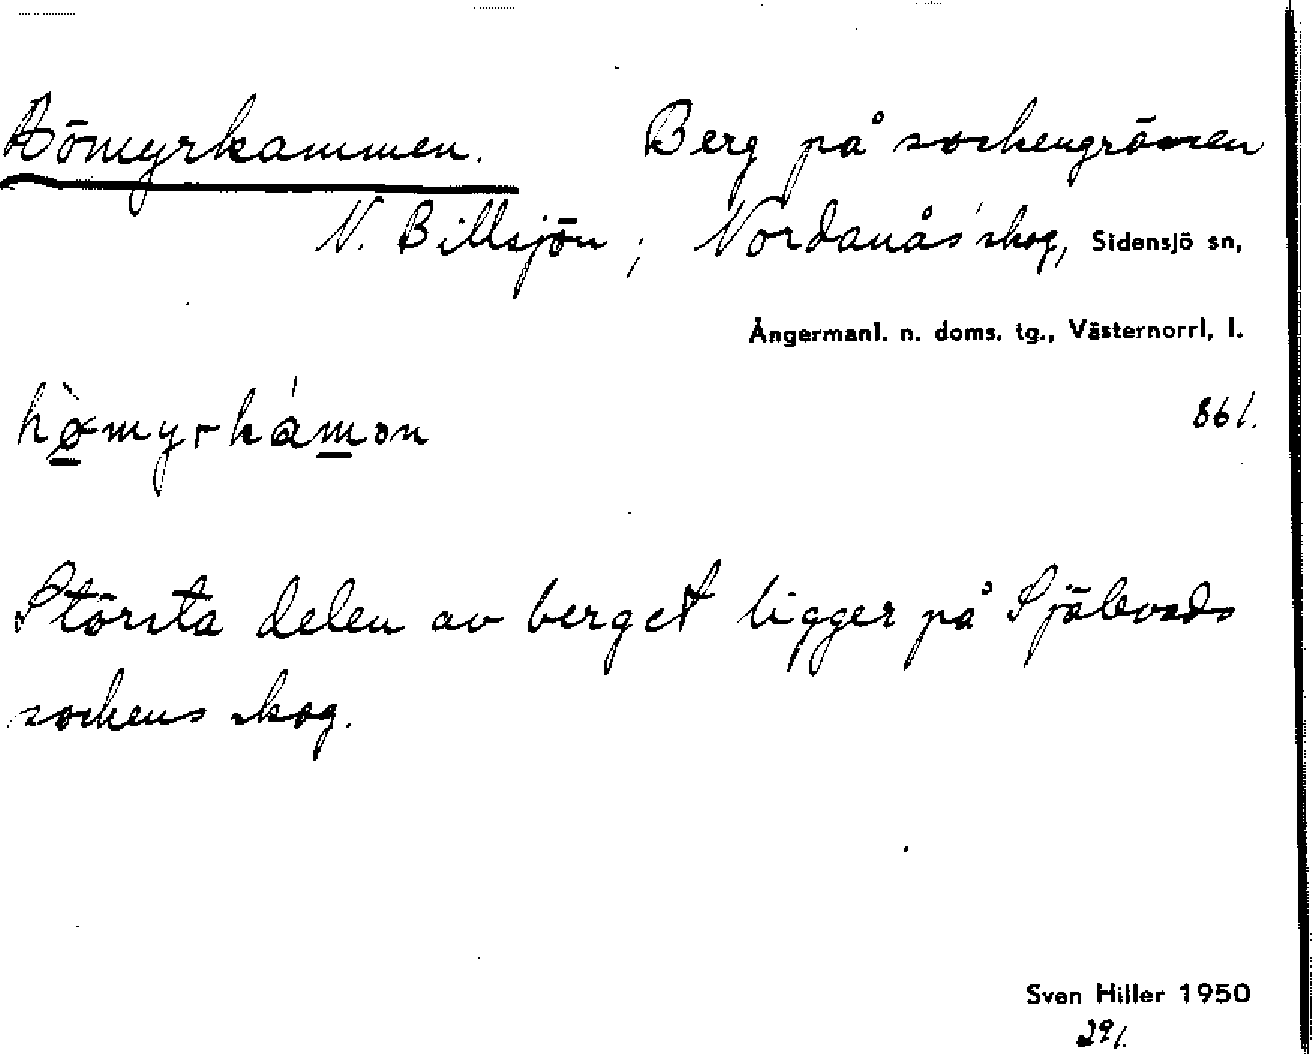 Hömyrkammen. Berg på sockengränsen
N. Billsjön, Nordanås' skog, Sidensjö sn,
Ångermanl. n. doms. tg., Västernorrl. l.
861.
hømyrkámon
Största delen av berget ligger på Själevads
sockens skog.
Sven Hiller 1950
29/.